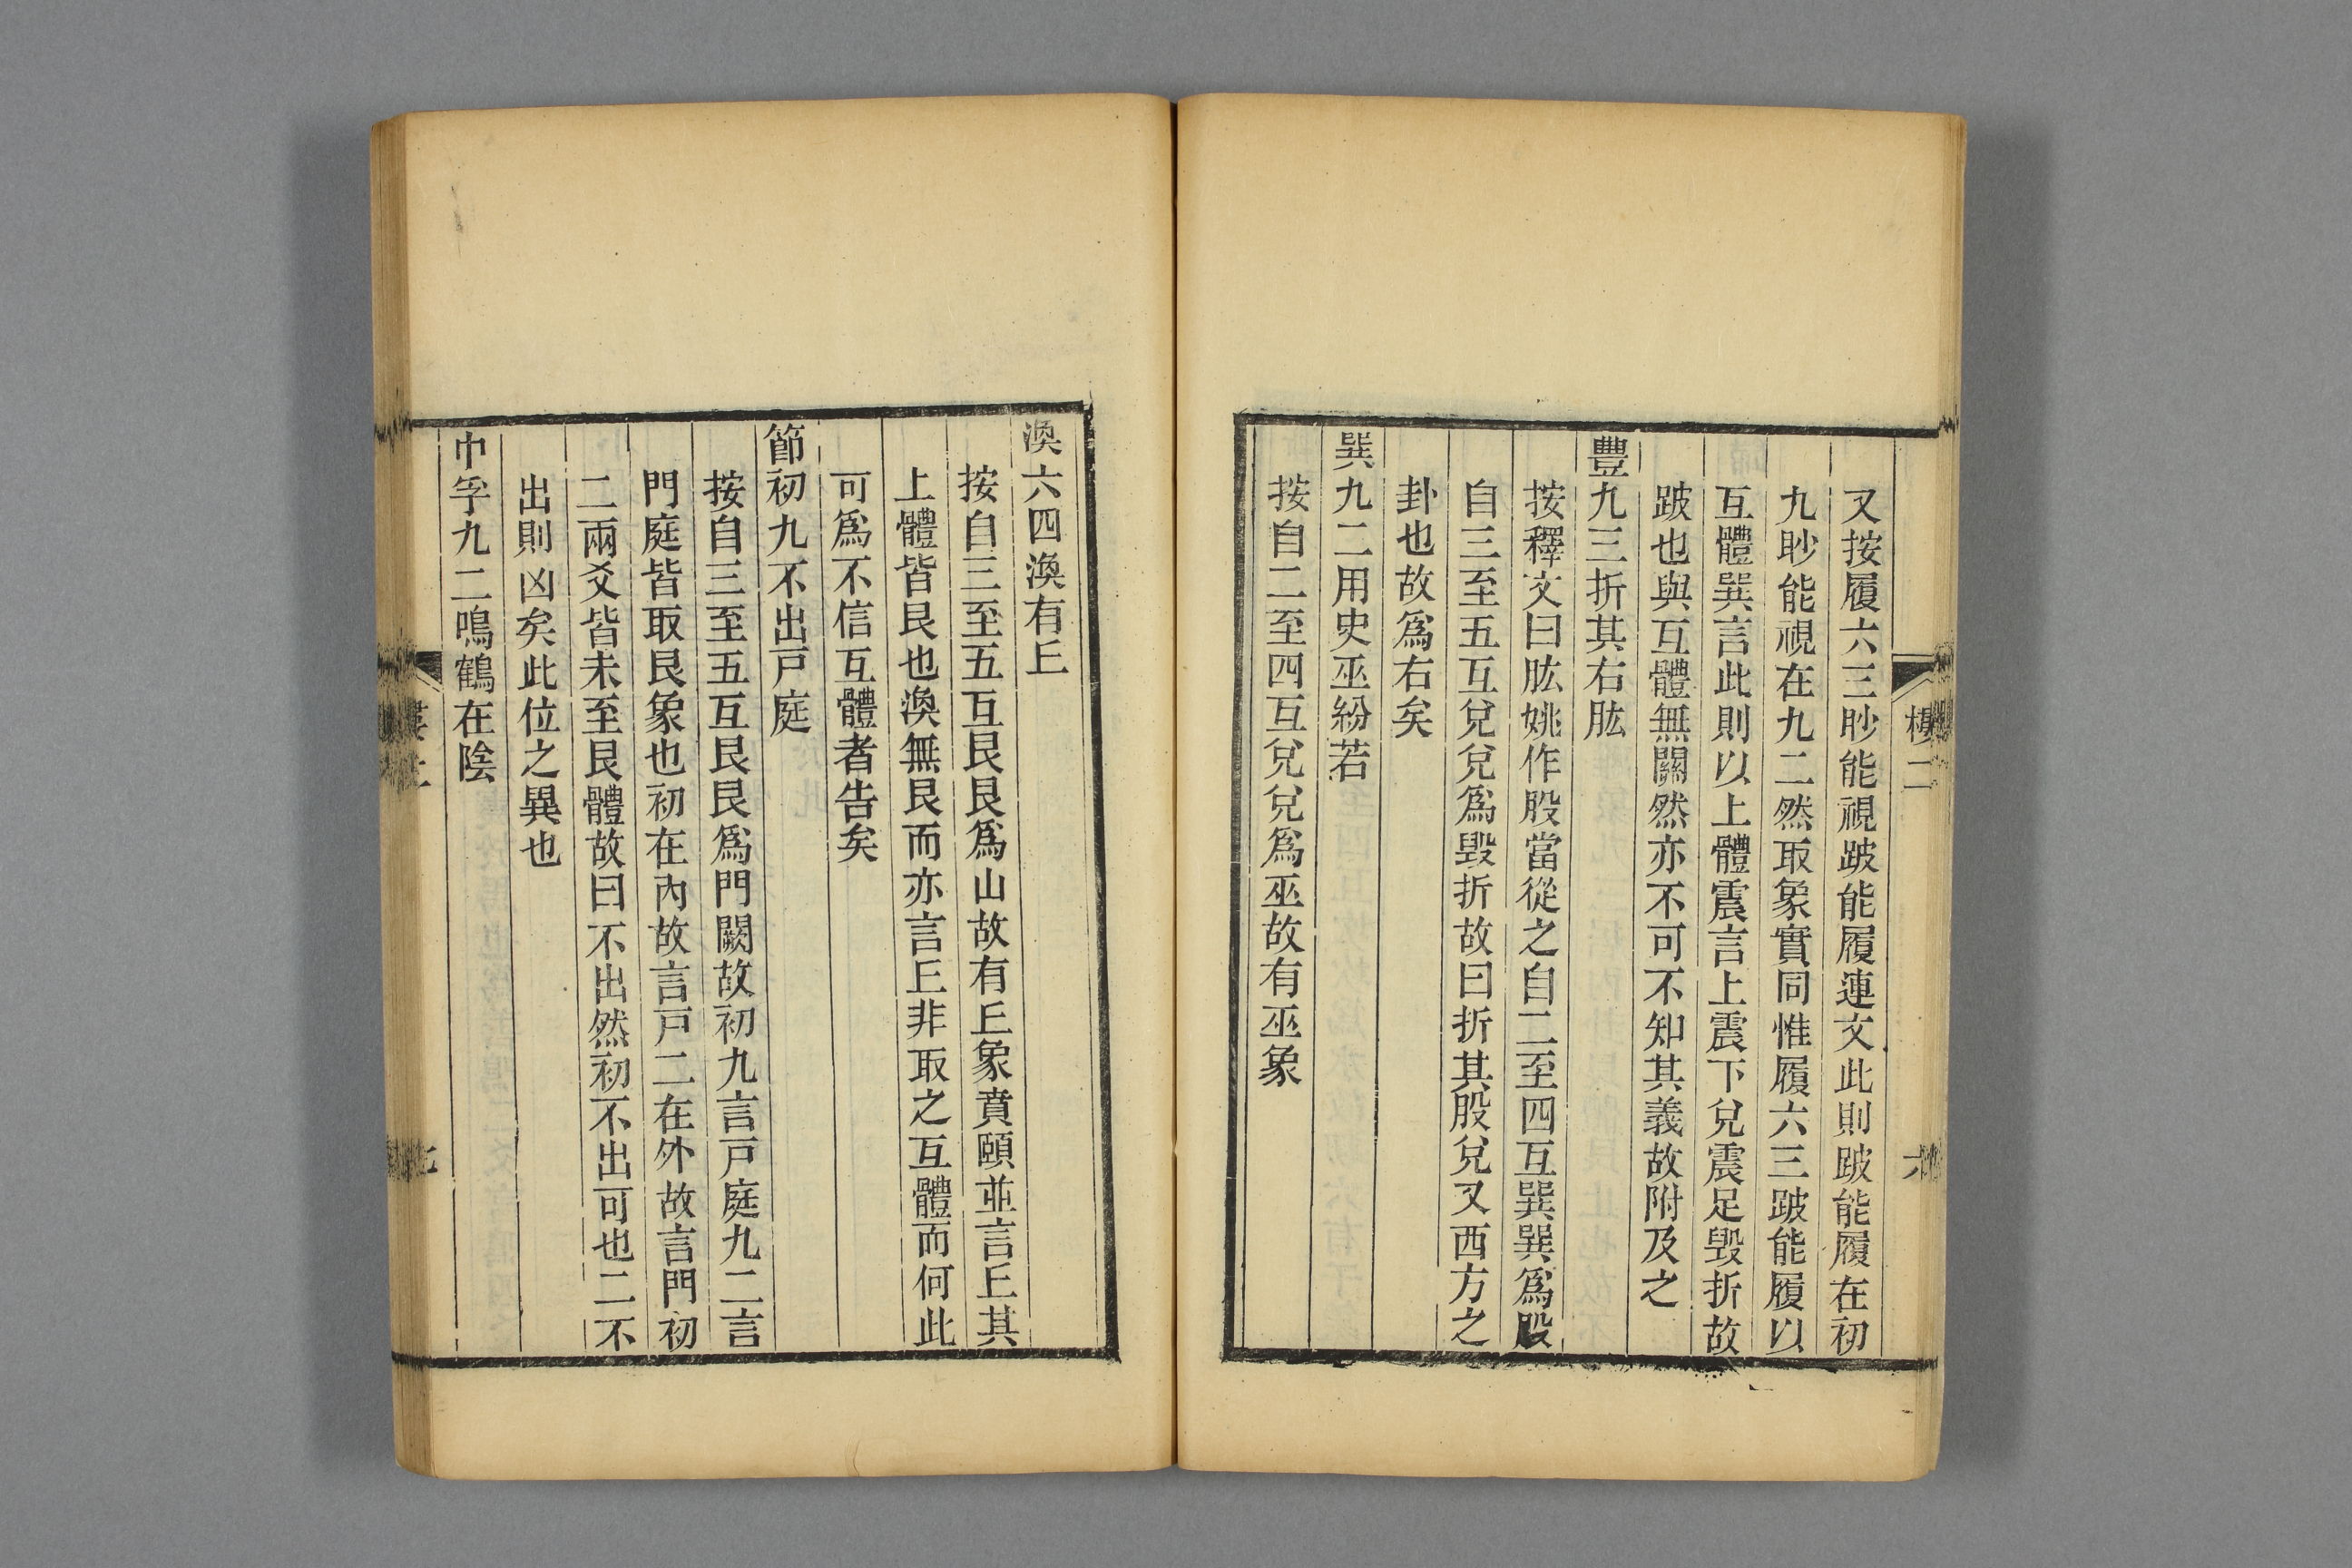 又按履六三眇能視跛能履連文此則跛能履在初
九眇能視在九二然取象實同惟履六三跛能履以
互體巽言此則以上體震言上震下兌震足毀折故
跛也與互體無關然亦不可不知其義故附及之
豐九三折其右肱
按釋文曰肱姚作股當從之自二至四互巽巽爲股
自三至五互兌兌爲毀折故曰折其股兌又西方之
卦也故爲右矣
巽九二用史巫紛若
按自二至四互兌兌爲巫故有巫象
渙六四渙有𠀉
按自三至五互艮艮爲山故有𠀉象賁頤並言𠀉其
上體皆艮也渙無艮而亦言𠀉非取之互體而何此
可爲不信互體者告矣
節初九不出戸庭
按自三至五互艮艮爲門闕故初九言戸庭九二言
門庭皆取艮象也初在內故言戸二在外故言門初
二兩爻皆未至艮體故曰不出然初不出可也二不
出則凶矣此位之異也
中孚九二鳴鶴在陰